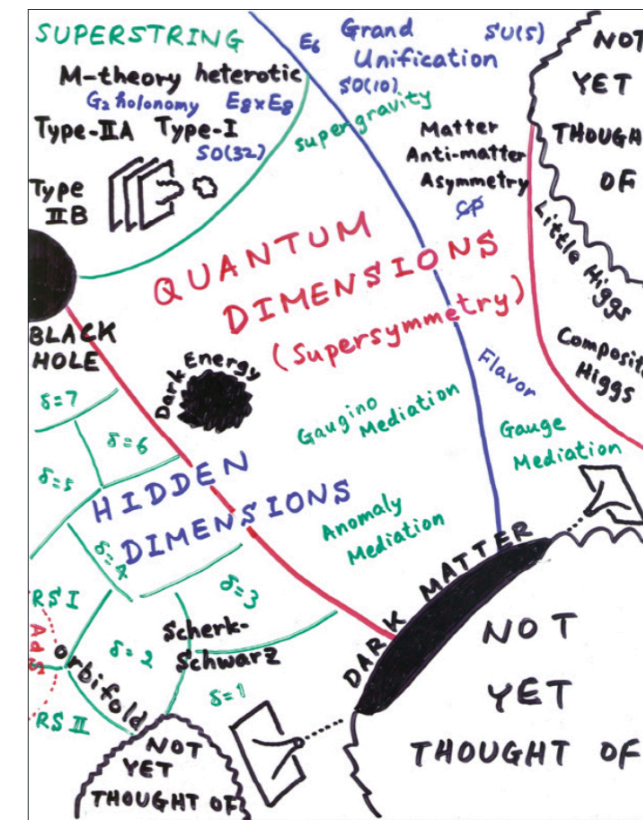 SUPERSTRING
M-theory heterotic
G₂ holonomy E₈×E₈
Type-IIA Type-I
SO(32)
Type
IIB
E₆ Grand
Unification
SU(5)
SO(10)
supergravity
Matter
Anti-matter
Asymmetry
CP
NOT
YET
THOUGHT
OF
Little Higgs
Composite
Higgs
QUANTUM
DIMENSIONS
(Supersymmetry)
BLACK
HOLE
Dark Energy
Flavor
Gaugino
Mediation
Gauge
Mediation
Anomaly
Mediation
δ=7
δ=6
δ=5
HIDDEN
DIMENSIONS
δ=4
δ=3
RS I
AdS
RS II
orbifold
δ=2
Scherk-
Schwarz
δ=1
DARK MATTER
NOT
YET
THOUGHT OF
NOT
YET
THOUGHT OF